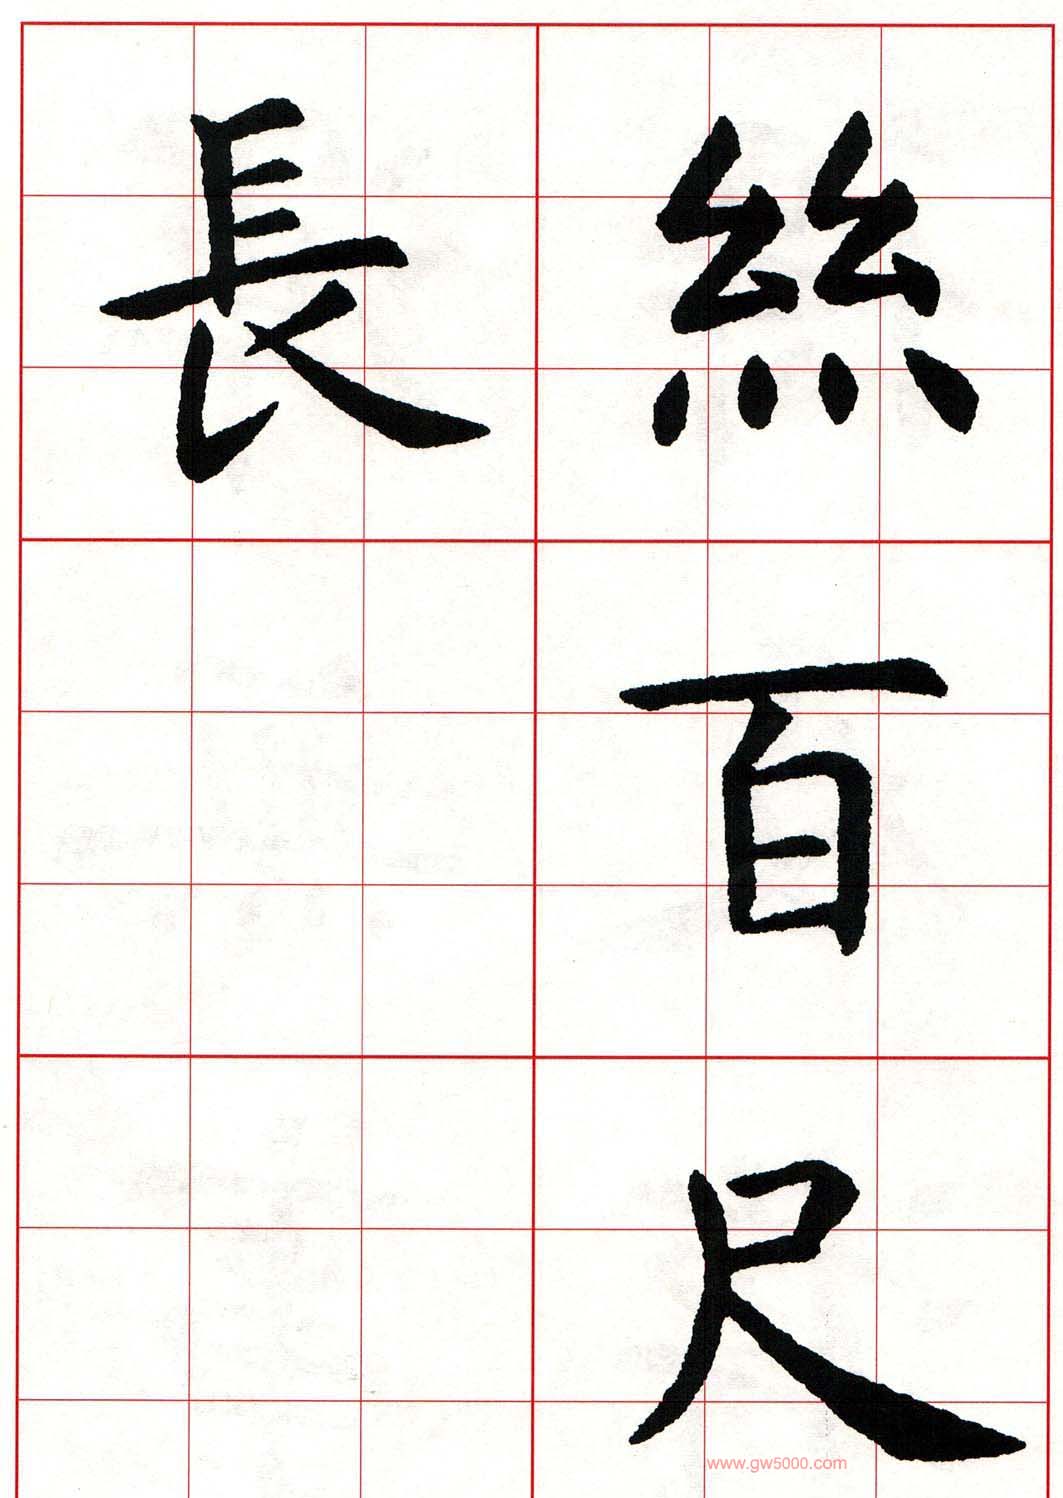 絲百尺
長
www.gw5000.com